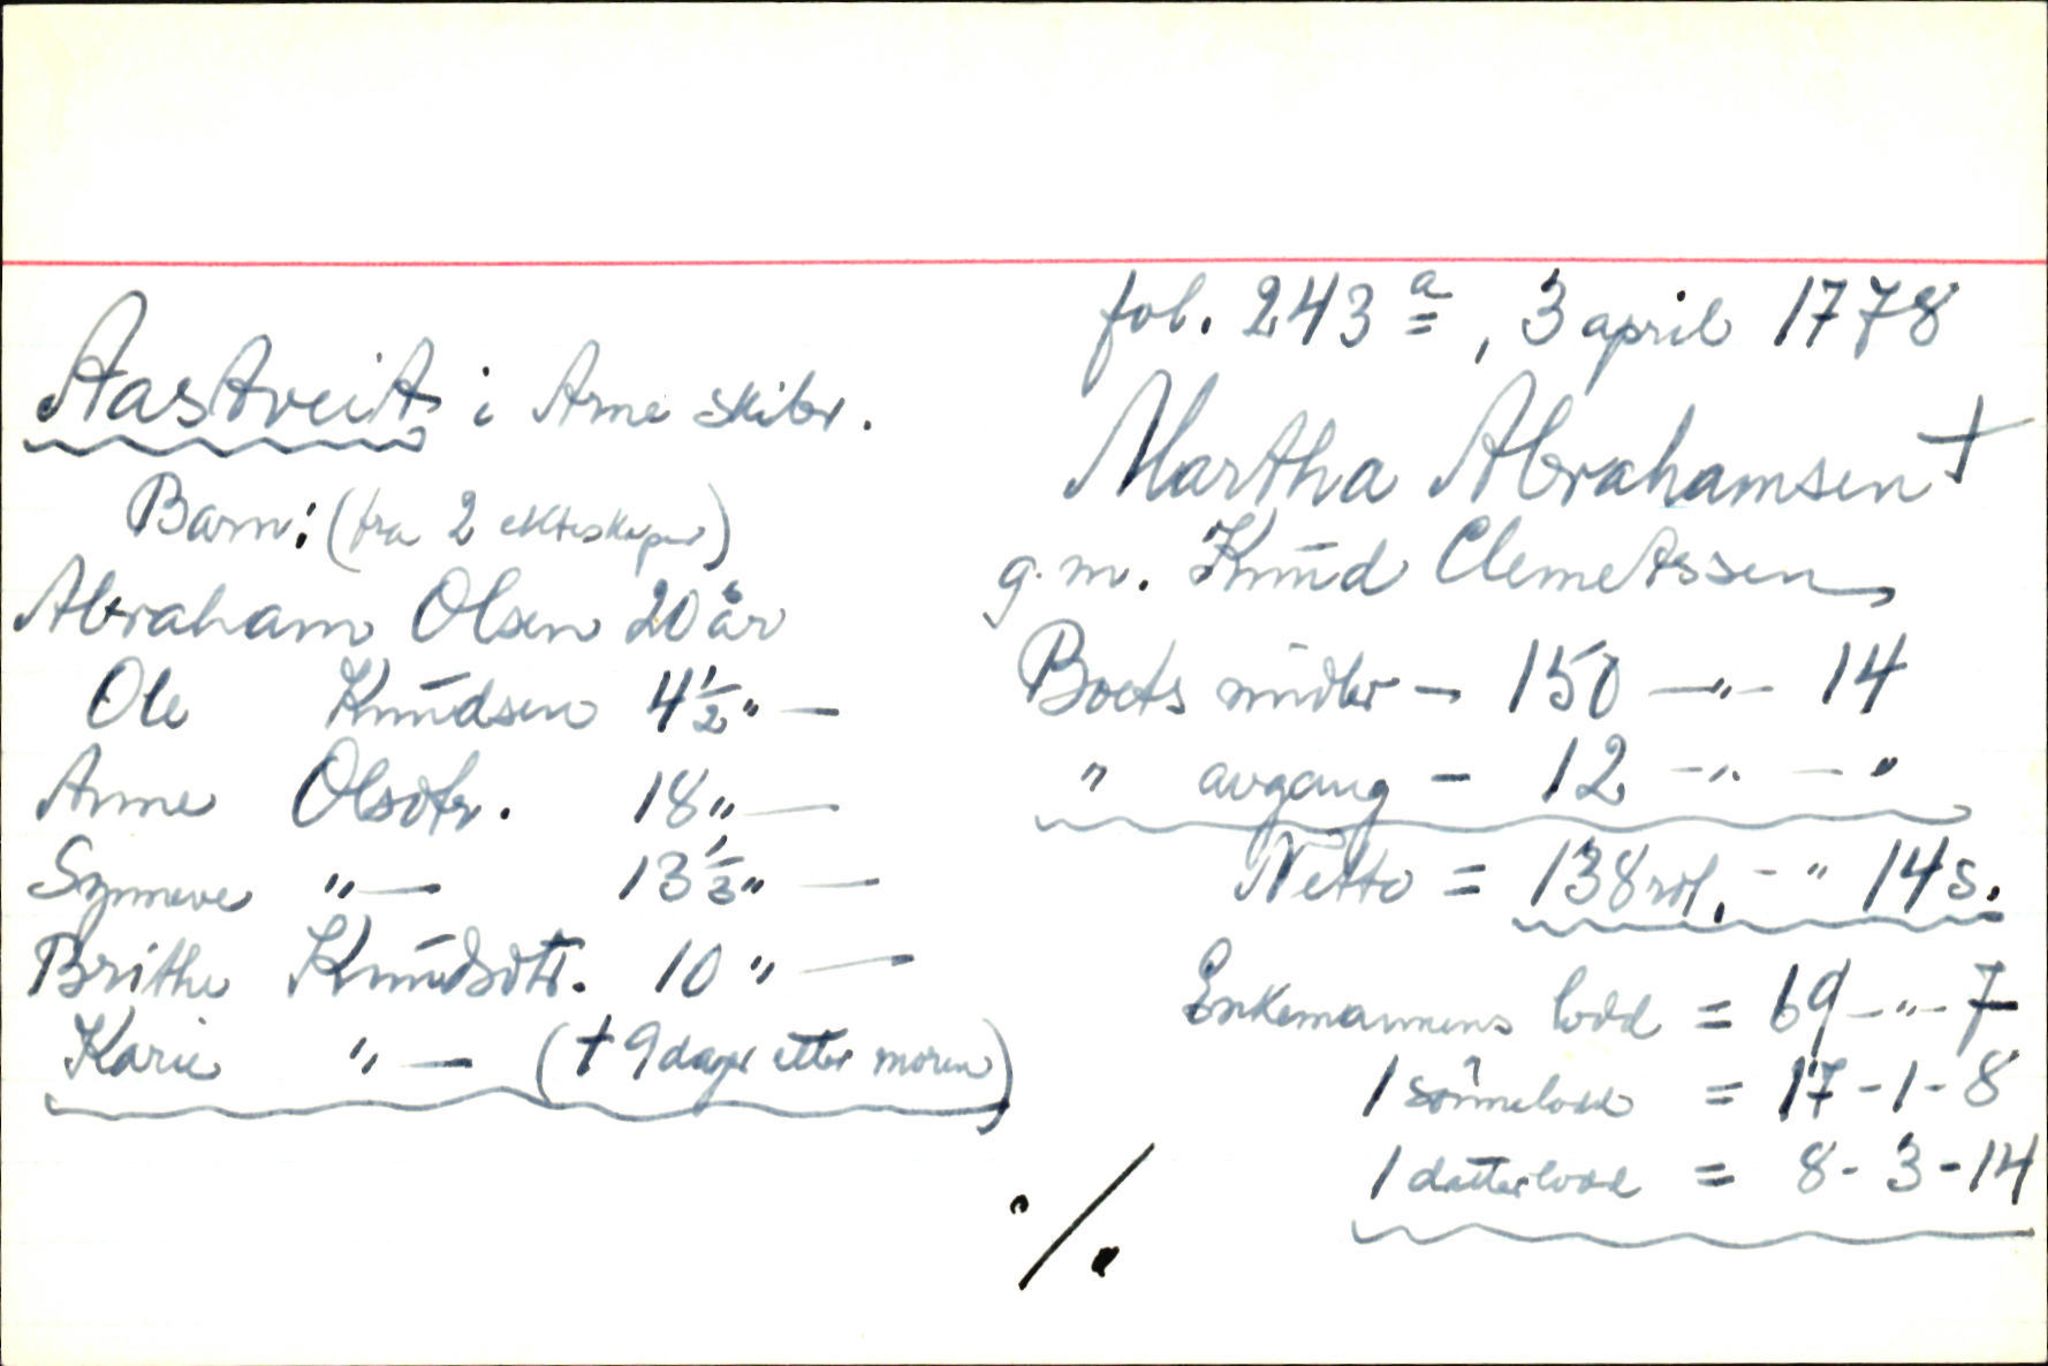 fol. 243 a, 3 april 1778
Aastveit i Arne skibr.
Martha Abrahamsen †
g.m. Knud Clemetssen
Barn: (fra 2 ekteskaper)
Abraham Olsen 20 år
Ole Knudsen 4 1/2 " —
Anne Olsdtr. 18 " —
Synneve " — 13 1/3 " —
Brithe Knudsdtr. 10 " —
Karie " — († 9 dager etter moren)
Boets midler - 150 - " - 14
" avgang - 12 - " - "
Netto = 138 rdl. - " 14 s.
Enkemannens lodd = 69 - " - 7
1 sønnelodd = 17 - 1 - 8
1 datterlodd = 8 - 3 - 14
./.